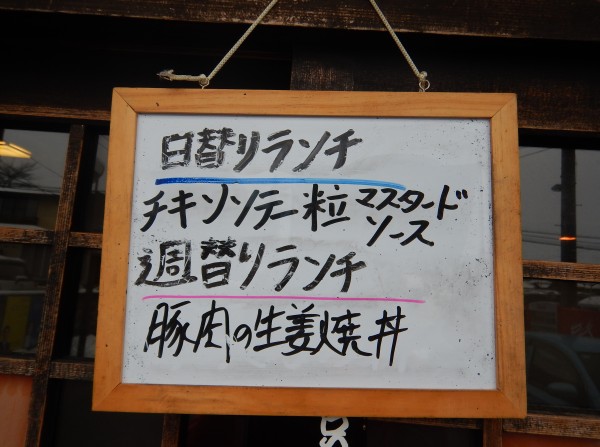 日替りランチ
チキンソテー粒マスタード
ソース
週替りランチ
豚肉の生姜焼丼